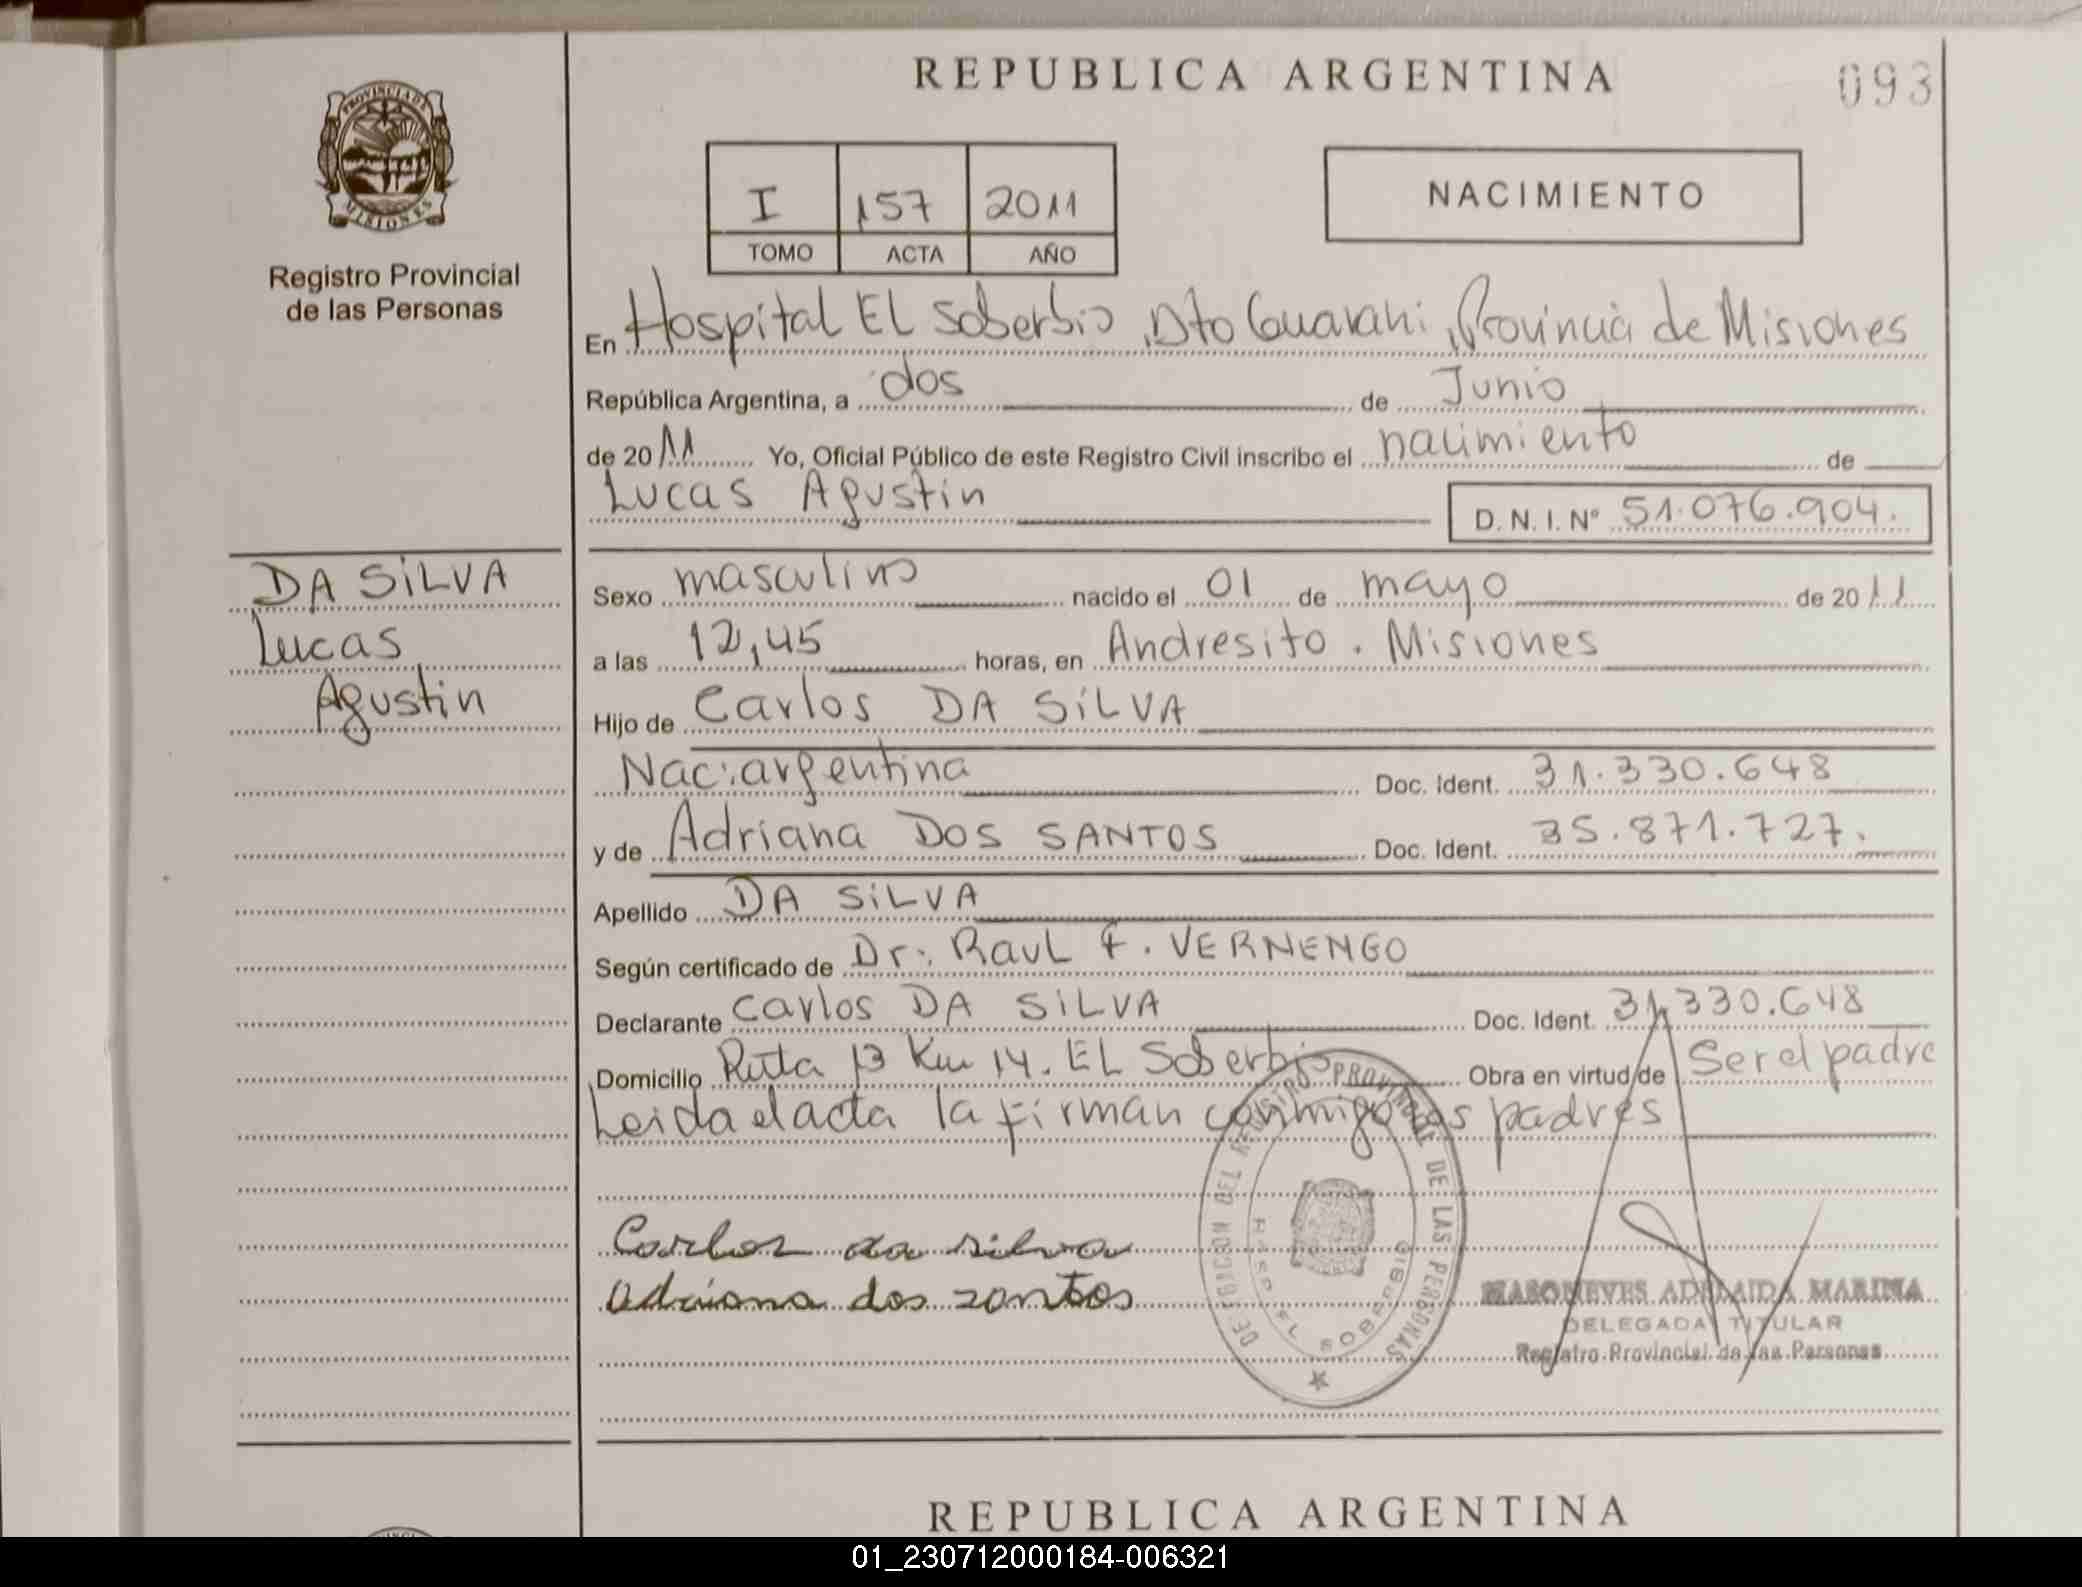 REPUBLICA ARGENTINA
093
PROVINCIA DE
MISIONES
Registro Provincial
de las Personas
I 157 2011
TOMO ACTA AÑO
NACIMIENTO
En Hospital EL Soberbio, Dto Guarani, Provincia de Misiones
República Argentina, a dos de Junio
de 2011 Yo, Oficial Público de este Registro Civil inscribo el nacimiento de
Lucas Agustin D. N. I. Nº 51.076.904.
DA SiLVA
Lucas
Agustin
Sexo masculino nacido el 01 de mayo de 2011
a las 12,45 horas, en Andresito. Misiones
Hijo de Carlos DA SiLVA
Nac: argentina Doc. Ident. 31.330.648
y de Adriana DOS SANTOS Doc. Ident. 35.871.727.
Apellido DA SiLVA
Según certificado de Dr: Raul F. VERNENGO
Declarante Carlos DA SiLVA Doc. Ident. 31.330.648
Domicilio Ruta 13 Km 14. EL Soberbio Obra en virtud de Ser el padre
Leida el acta la firman conmigo los padres
Carlos da silva
adriana dos santos
DELEGACION DEL REGISTRO PROVINCIAL DE LAS PERSONAS
HOSP. EL SOBERBIO
MASONEVES ADELAIDA MARINA
DELEGADA TITULAR
Registro Provincial de las Personas
REPUBLICA ARGENTINA
01_230712000184-006321